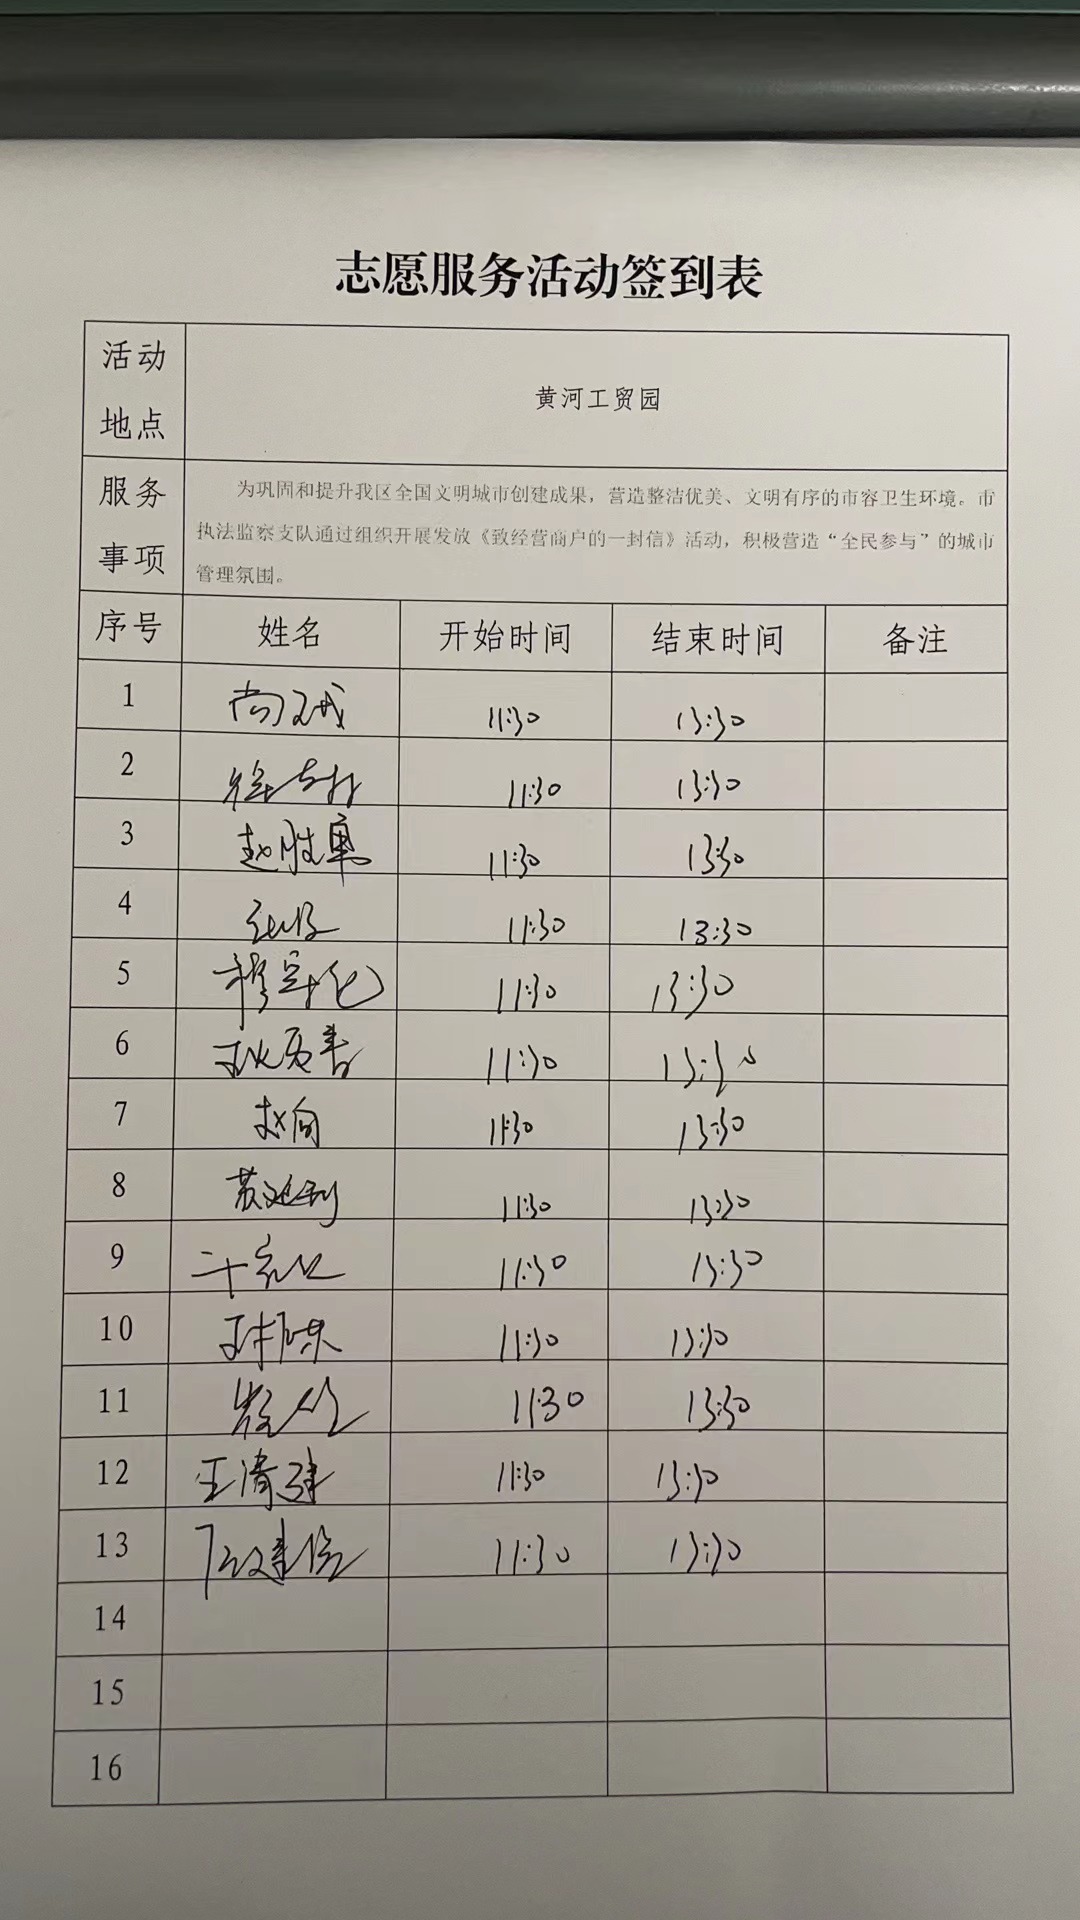 志愿服务活动签到表
活动地点 黄河工贸园
服务事项 为巩固和提升我区全国文明城市创建成果，营造整洁优美、文明有序的市容卫生环境。市
执法监察支队通过组织开展发放《致经营商户的一封信》活动，积极营造“全民参与”的城市
管理氛围。
序号 姓名 开始时间 结束时间 备注
1 11:30 13:30
2 11:30 13:30
3 赵胜 11:30 13:30
4 11:30 13:30
5 穆军化 11:30 13:30
6 11:30 13:30
7 赵向 11:30 13:30
8 黄延利 11:30 13:30
9 11:30 13:30
10 11:30 13:30
11 11:30 13:30
12 王清建 11:30 13:30
13 11:30 13:30
14
15
16